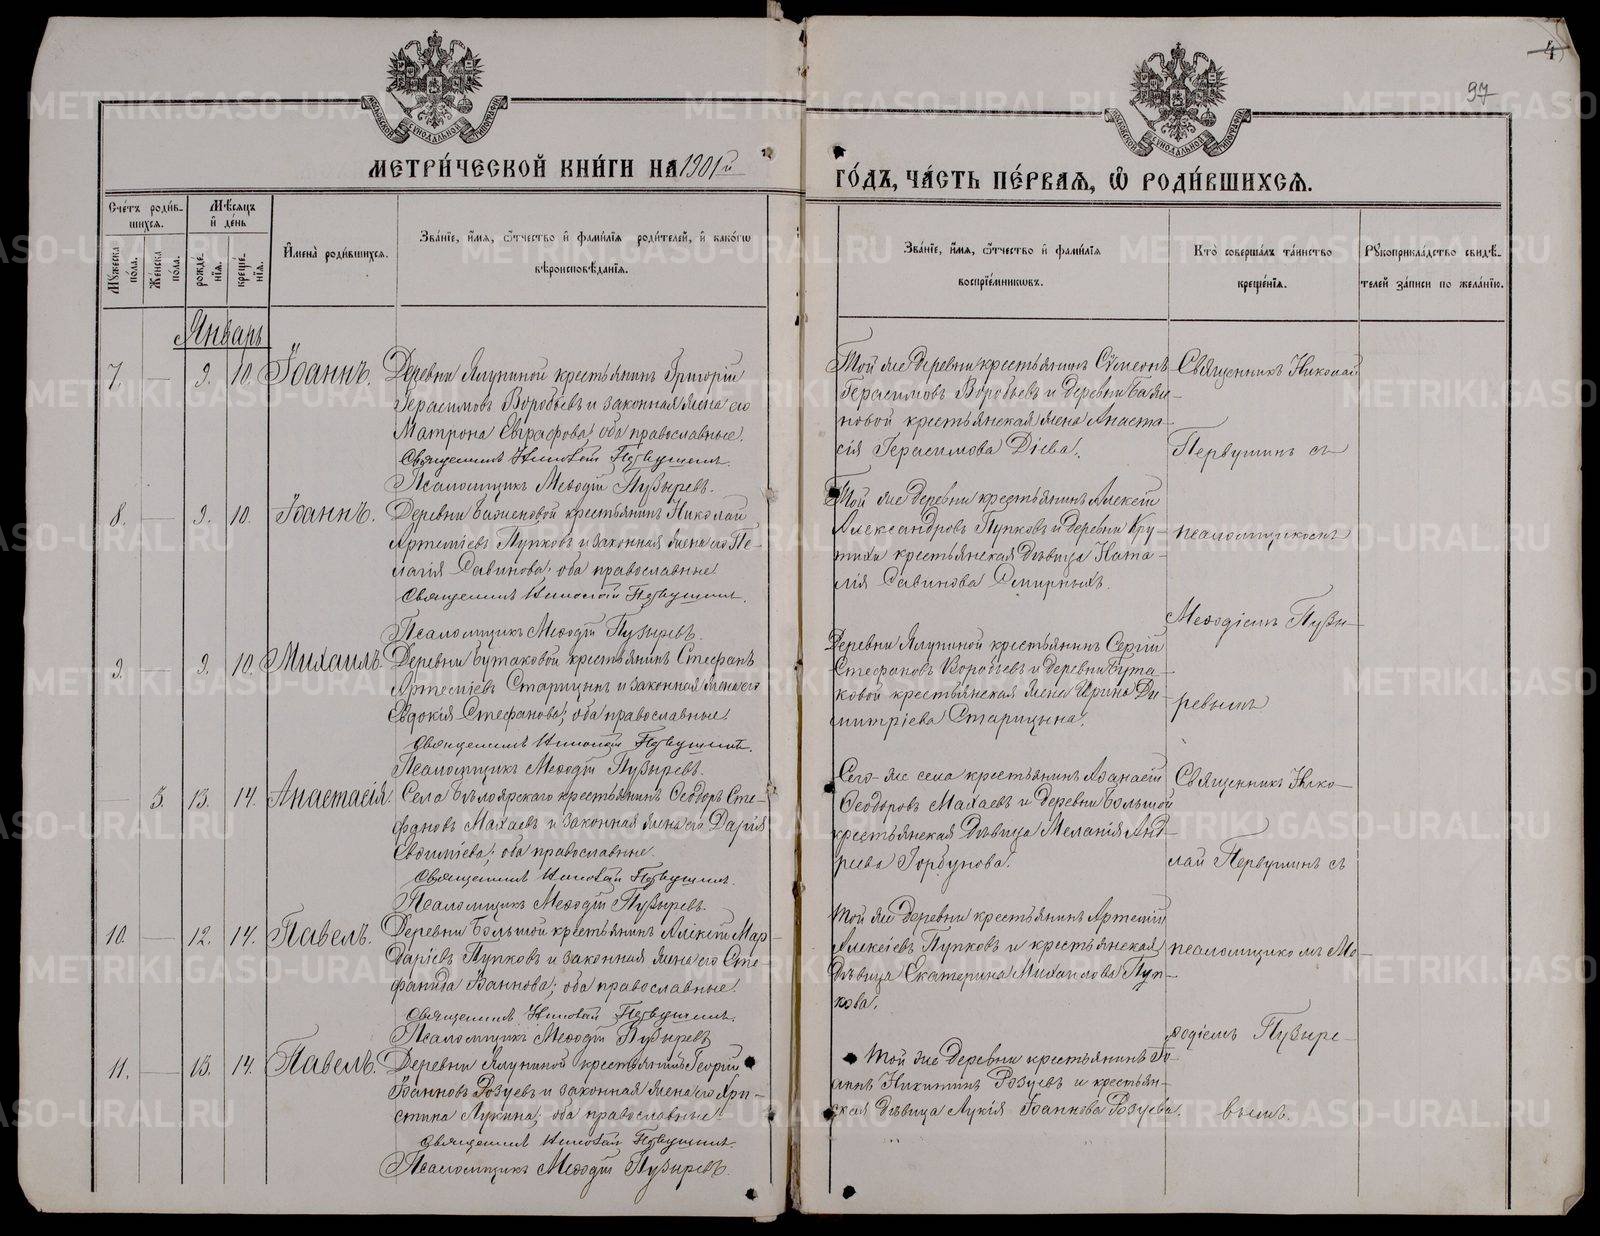 4
97
МЕТРИ́ЧЕСКОЙ КНИ́ГИ НА 1901й
ГО́ДЪ, ЧА́СТЬ ПЕ́РВАЯ, Ѡ҆ РОДИ́ВШИХСЯ.
Счетъ роди́в-
шихся.
Мѣсяцъ
и҆ де́нь
Мꙋжеска по́ла.
Же́нска по́ла.
рожде́-
нїя.
креще́-
нїя.
И҆мена̀ роди́вшихся.
Зва́нїе, и҆́мѧ, ѻ҆́тчество и҆ фами́лїѧ роди́телей, и҆ како́гѡ
вѣроисповѣ́данїѧ.
Зва́нїе, и҆́мѧ, ѻ҆́тчество и҆ фами́лїѧ
воспрїе́мникѡвъ.
Кто̀ соверша́лъ та́инство
креще́нїѧ.
Рꙋкоприкла́дство свидѣ́-
телей за́писи по жела́нїю.
Январь
7. — 9. 10. Іоаннъ.
Деревни Ялуниной крестьянинъ Григорій
Герасимовъ Воробьевъ и законная жена его
Матрона Евграфова; оба православные.
Священникъ Николай Первушинъ.
Псаломщикъ Меѳодій Пузыревъ.
Той же деревни крестьянинъ Сѵмеонъ
Герасимовъ Воробьевъ и деревни Баже-
новой крестьянская жена Анаста-
сія Герасимова Діева.
Священникъ Николай
Первушинъ съ
8. — 9. 10. Іоаннъ.
Деревни Баженовой крестьянинъ Николай
Артеміевъ Пупковъ и законная жена его Пе-
лагія Савинова; оба православные.
Священникъ Николай Первушинъ.
Псаломщикъ Меѳодій Пузыревъ.
Той же деревни крестьянинъ Алексій
Александровъ Пупковъ и деревни Кру-
тихи крестьянская дѣвица Ната-
лія Савинова Смирныхъ.
псаломщикомъ
Меѳодіемъ Пузы-
9. — 9. 10. Михаилъ.
Деревни Бутаковой крестьянинъ Стефанъ
Артеміевъ Старицынъ и законная жена его
Евдокія Стефанова; оба православные.
Священникъ Николай Первушинъ.
Псаломщикъ Меѳодій Пузыревъ.
Деревни Ялуниной крестьянинъ Сергій
Стефановъ Воробьевъ и деревни Бута-
ковой крестьянская жена Ирина Ди-
митріева Старицына.
ревымъ
— 3. 13. 14. Анастасія.
Села Бѣлоярскаго крестьянинъ Ѳеодоръ Сте-
фановъ Махаевъ и законная жена его Дарія
Евѳиміева; оба православные.
Священникъ Николай Первушинъ.
Псаломщикъ Меѳодій Пузыревъ.
Сего же села крестьянинъ Аѳанасій
Ѳеодоровъ Махаевъ и деревни Большой
крестьянская дѣвица Меланія Анд-
реева Горбунова.
Священникъ Нико-
лай Первушинъ съ
10. — 12. 14. Павелъ.
Деревни Большой крестьянинъ Алексій Мар-
даріевъ Пупковъ и законная жена его Сте-
фанида Іоаннова; оба православные.
Священникъ Николай Первушинъ.
Псаломщикъ Меѳодій Пузыревъ
Той же деревни крестьянинъ Артемій
Алексіевъ Пупковъ и крестьянская
дѣвица Екатерина Михаилова Пуп-
кова.
псаломщикомъ Ме-
ѳодіемъ Пузыре-
11. — 13. 14. Павелъ.
Деревни Ялуниной крестьянинъ Георгій
Іоанновъ Розуевъ и законная жена его Хри-
стина Лукина; оба православные.
Священникъ Николай Первушинъ.
Псаломщикъ Меѳодій Пузыревъ.
Той же деревни крестьянинъ Іо-
аннъ Никитинъ Розуевъ и крестьян-
ская дѣвица Лукія Іоаннова Розуева.
вымъ.
METRIKI.GASO-URAL.RU